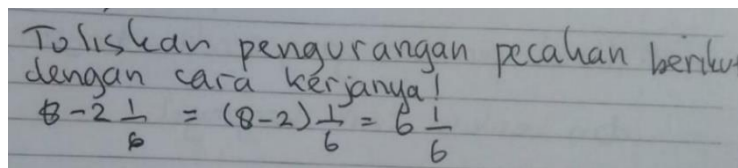 Toliskan pengurangan pecahan beriku
dengan cara kerjanya!
8 - 2 1/6 = (8-2) 1/6 = 6 1/6